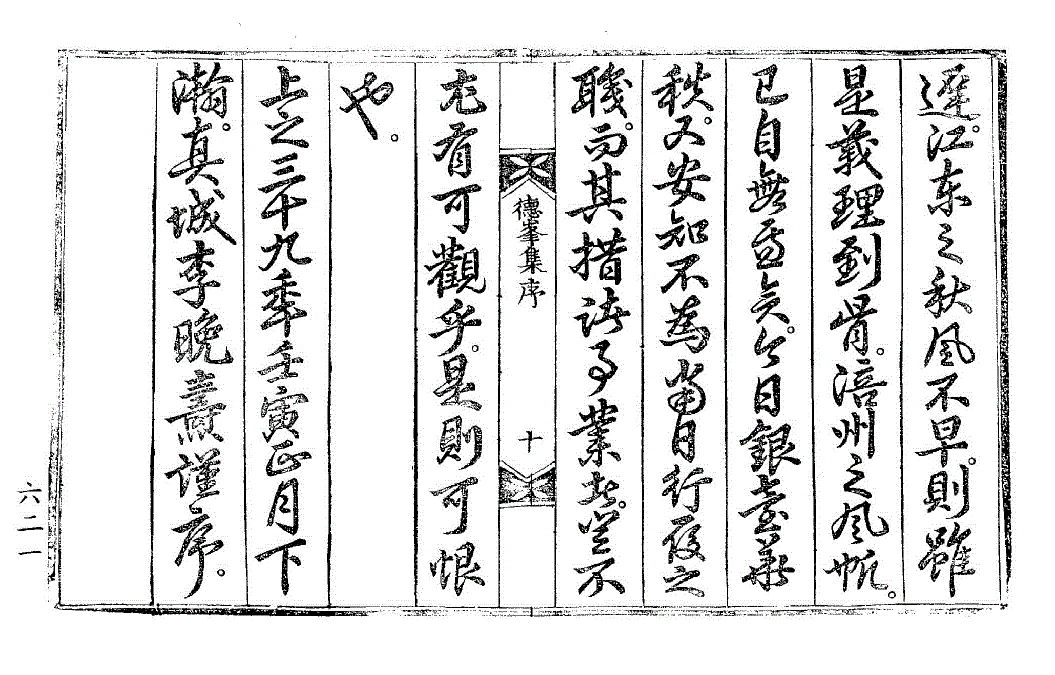 遲。江东之秋風不早。則雖
是義理到骨。涪州之風帆。
已自無恙矣。今日銀臺華
秩。又安知不為當日行役之
職。而其措諸事業者。豈不
德峯集序
十
尤有可觀乎。是則可恨
也。
上之三十九秊壬寅正月下
瀚。真城李晚燾謹序。
六二一